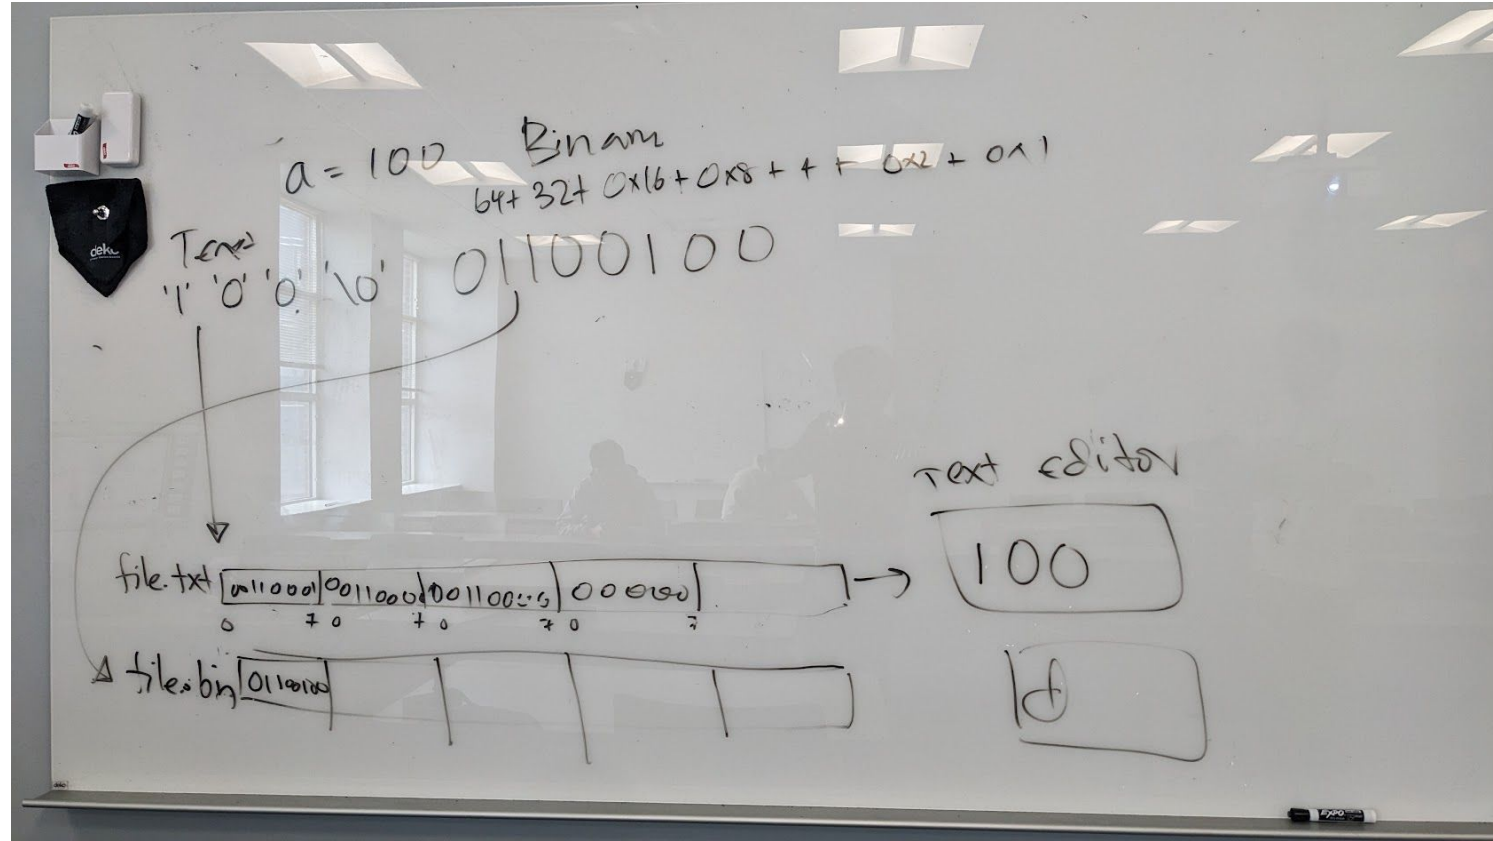 a = 100
Binary
64+ 32+ 0x16+ 0x8 + 4 + 0x2 + 0x1
Text
'1' '0' '0' '\0'
01100100
Text Editor
file.txt 00110001 00110000 00110000 00000
0 7 0 7 0 7 0 7
100
file.bin 01100100
d
EXPO